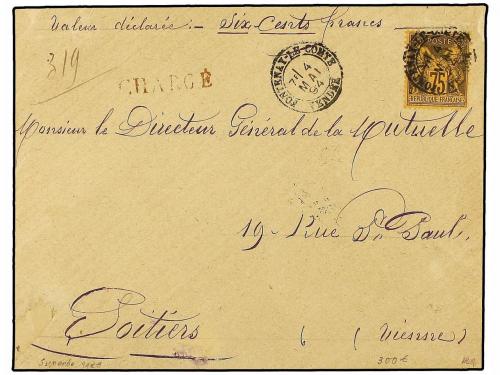 Valeur déclarée :- Six Cents Francs
319
CHARGÉ
FONTENAY-LE-COMTE
4
MAI
94
VENDÉE
POSTES
75
REPUBLIQUE FRANCAISE
Monsieur le Directeur Général de la Mutuelle
19 - Rue St Paul.
Poitiers
(Vienne)
300€